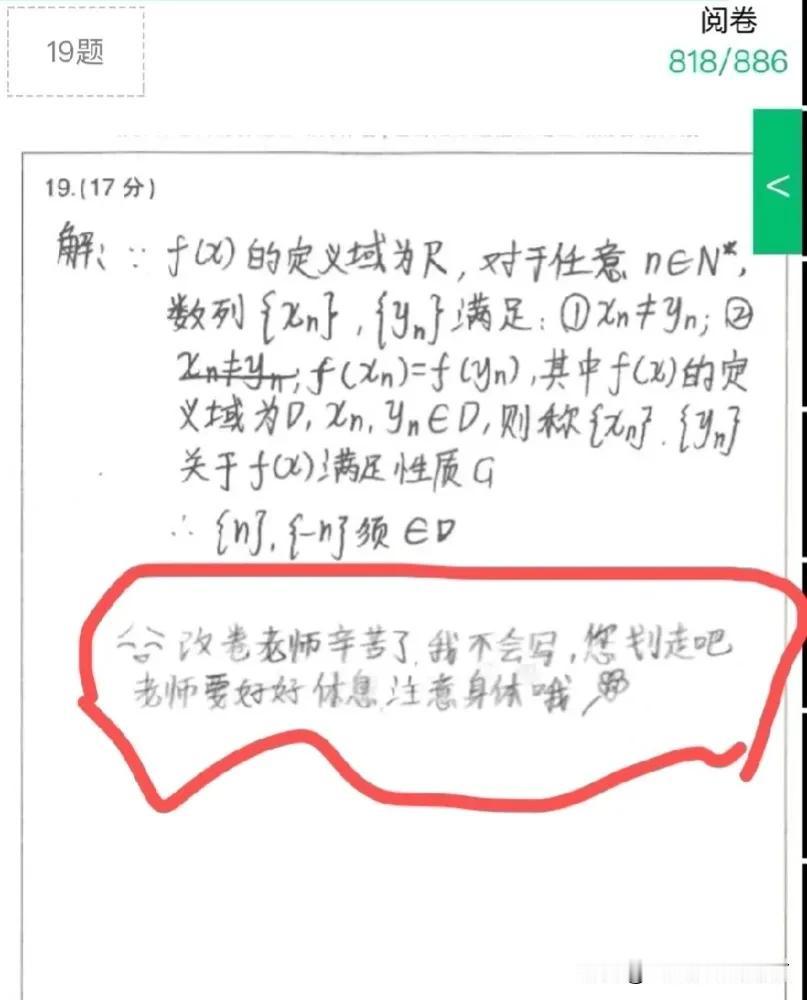 19题
阅卷
818/886
<
19.(17分)
解: ∵ f(x)的定义域为R, 对于任意 n∈N*,
数列{xn}, {yn}满足: ①xn≠yn; ②
xn≠yn; f(xn)=f(yn), 其中f(x)的定
义域为D, xn, yn∈D, 则称{xn}. {yn}
关于f(x)满足性质G
∴ {n}, {-n}须∈D
改卷老师辛苦了,我不会写,您划走吧
老师要好好休息,注意身体哦